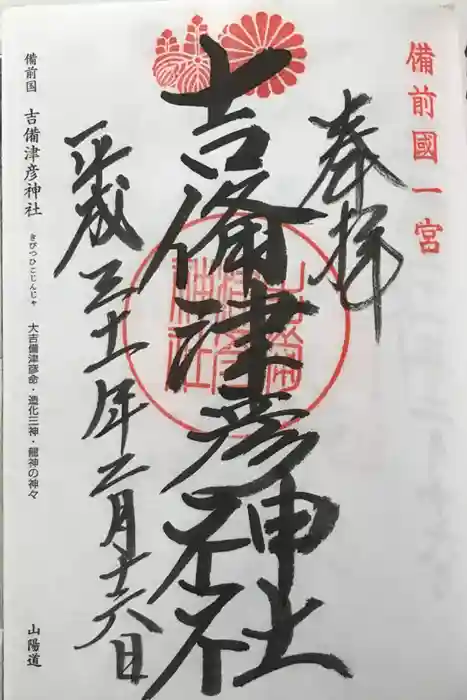 備前國一宮
奉拝
吉備津彦神社
平成三十一年二月十六日
備前国 吉備津彦神社 きびつひこじんじゃ 大吉備津彦命・造化三神・龍神の神々 山陽道